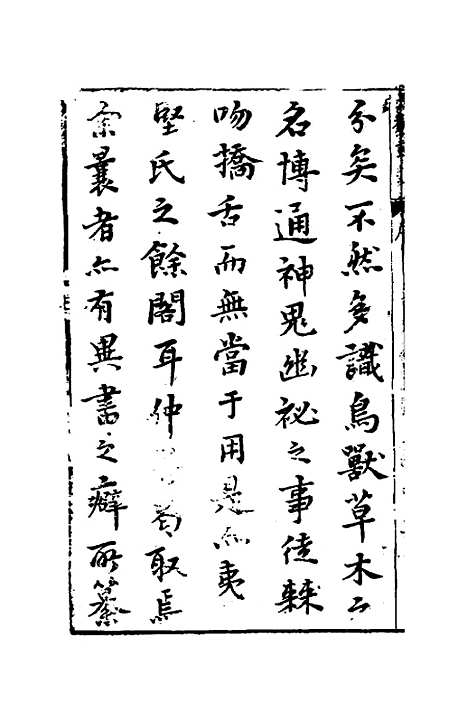 分矣不然多識鳥獸草木之
名博通神鬼幽祕之事徒棘
吻撟舌而無當于用是亦夷
堅氏之餘閣耳仲奚取焉
余曩者亦有異書之癖所纂